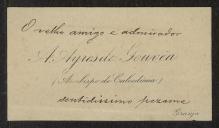 O velho amigo e admirador
A. Ayres de Gouvêa
(Arcebispo de Calcedonia)
sentidissimo pezame
Granja